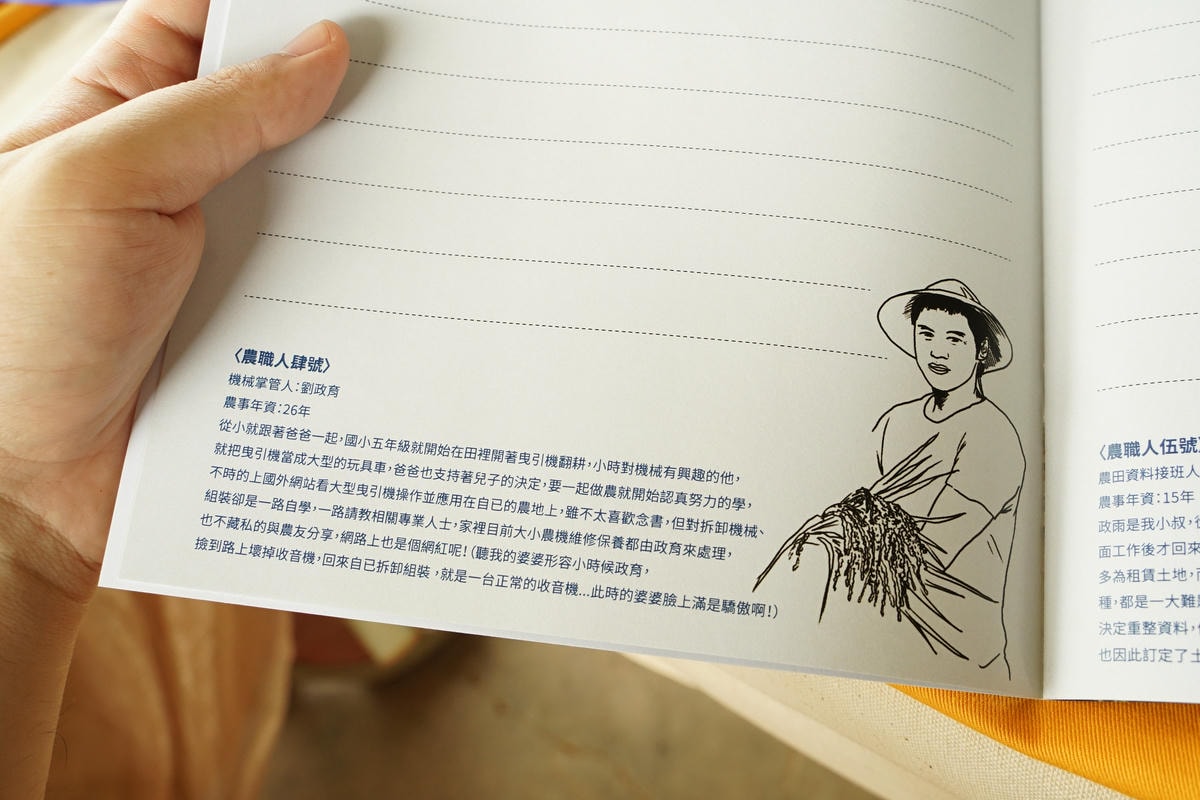 〈農職人肆號〉
機械掌管人：劉政育
農事年資：26年
從小就跟著爸爸一起，國小五年級就開始在田裡開著曳引機翻耕，小時對機械有興趣的他，
就把曳引機當成大型的玩具車，爸爸也支持著兒子的決定，要一起做農就開始認真努力的學，
不時的上國外網站看大型曳引機操作並應用在自已的農地上，雖不太喜歡念書，但對拆卸機械、
組裝卻是一路自學，一路請教相關專業人士，家裡目前大小農機維修保養都由政育來處理，
也不藏私的與農友分享，網路上也是個網紅呢！（聽我的婆婆形容小時候政育，
撿到路上壞掉收音機，回來自已拆卸組裝，就是一台正常的收音機...此時的婆婆臉上滿是驕傲啊！）
〈農職人伍號〉
農田資料接班人
農事年資：15年
政雨是我小叔，
面工作後才回來
多為租賃土地，
種，都是一大難
決定重整資料，
也因此訂定了土